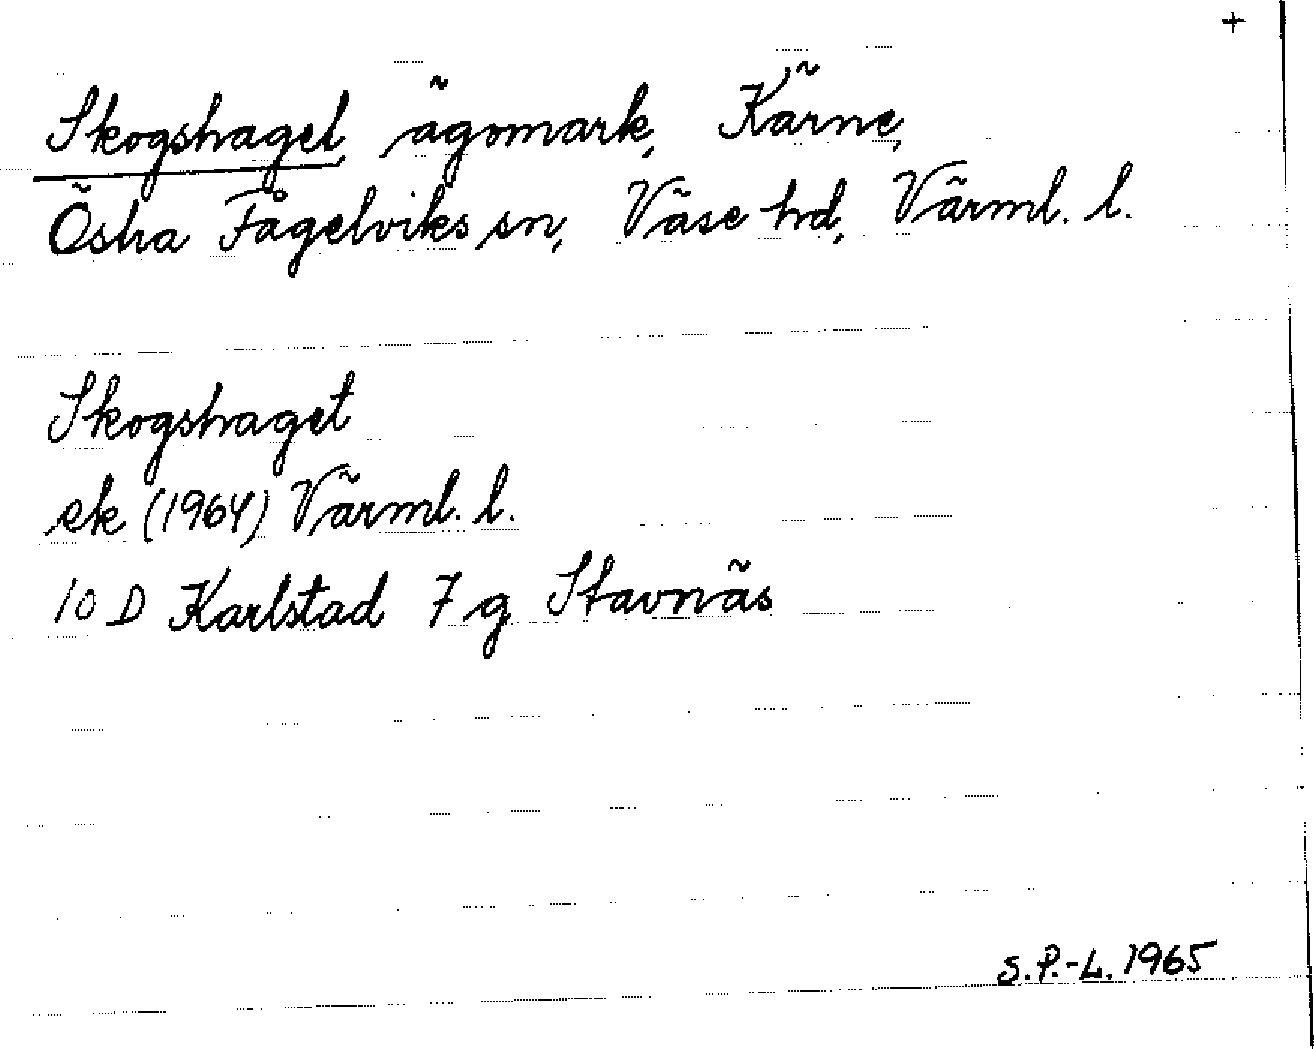 +
Skogshaget, ägomark, Kärne,
Östra Fågelviks sn, Väse hd, Värml. l.
Skogshaget
ek (1964) Värml. l.
10 D Karlstad 7 g Stavnäs
S. P.-L. 1965